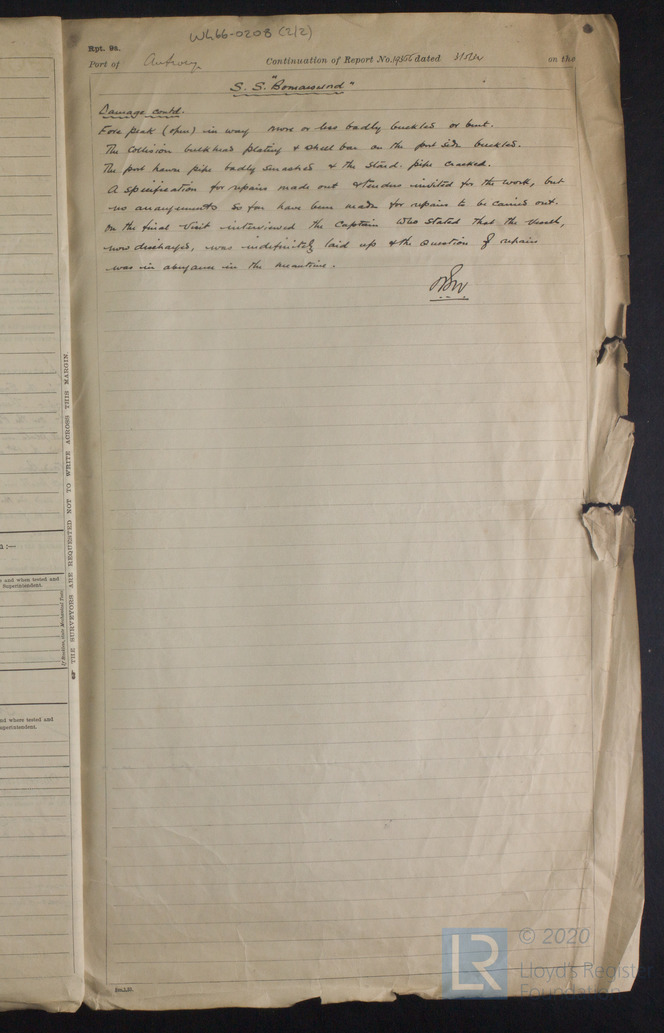 WG66-0208 (2/2)
Rpt. 9a.
Port of Antwerp Continuation of Report No. dated on the
S.S. "Bomarsund"
Damage contd.
Fore peak (open) in way more or less badly buckled or bent.
The Collision bulkhead plating & shell bar on the port side buckled.
The port hawse pipe badly smashed & the starbd. pipe cracked.
A specification for repairs made out & tenders invited for the work, but
no arrangements so far have been made for repairs to be carried out.
On the final visit interviewed the Captain who stated that the vessel,
now discharged, was indefinitely laid up & the question of repairs
was in abeyance in the meantime.
THE SURVEYORS ARE REQUESTED NOT TO WRITE ACROSS THIS MARGIN.
a :—
and when tested and
Superintendent.
nd where tested and
uperintendent.
LR © 2020
Lloyd's Register
Foundation